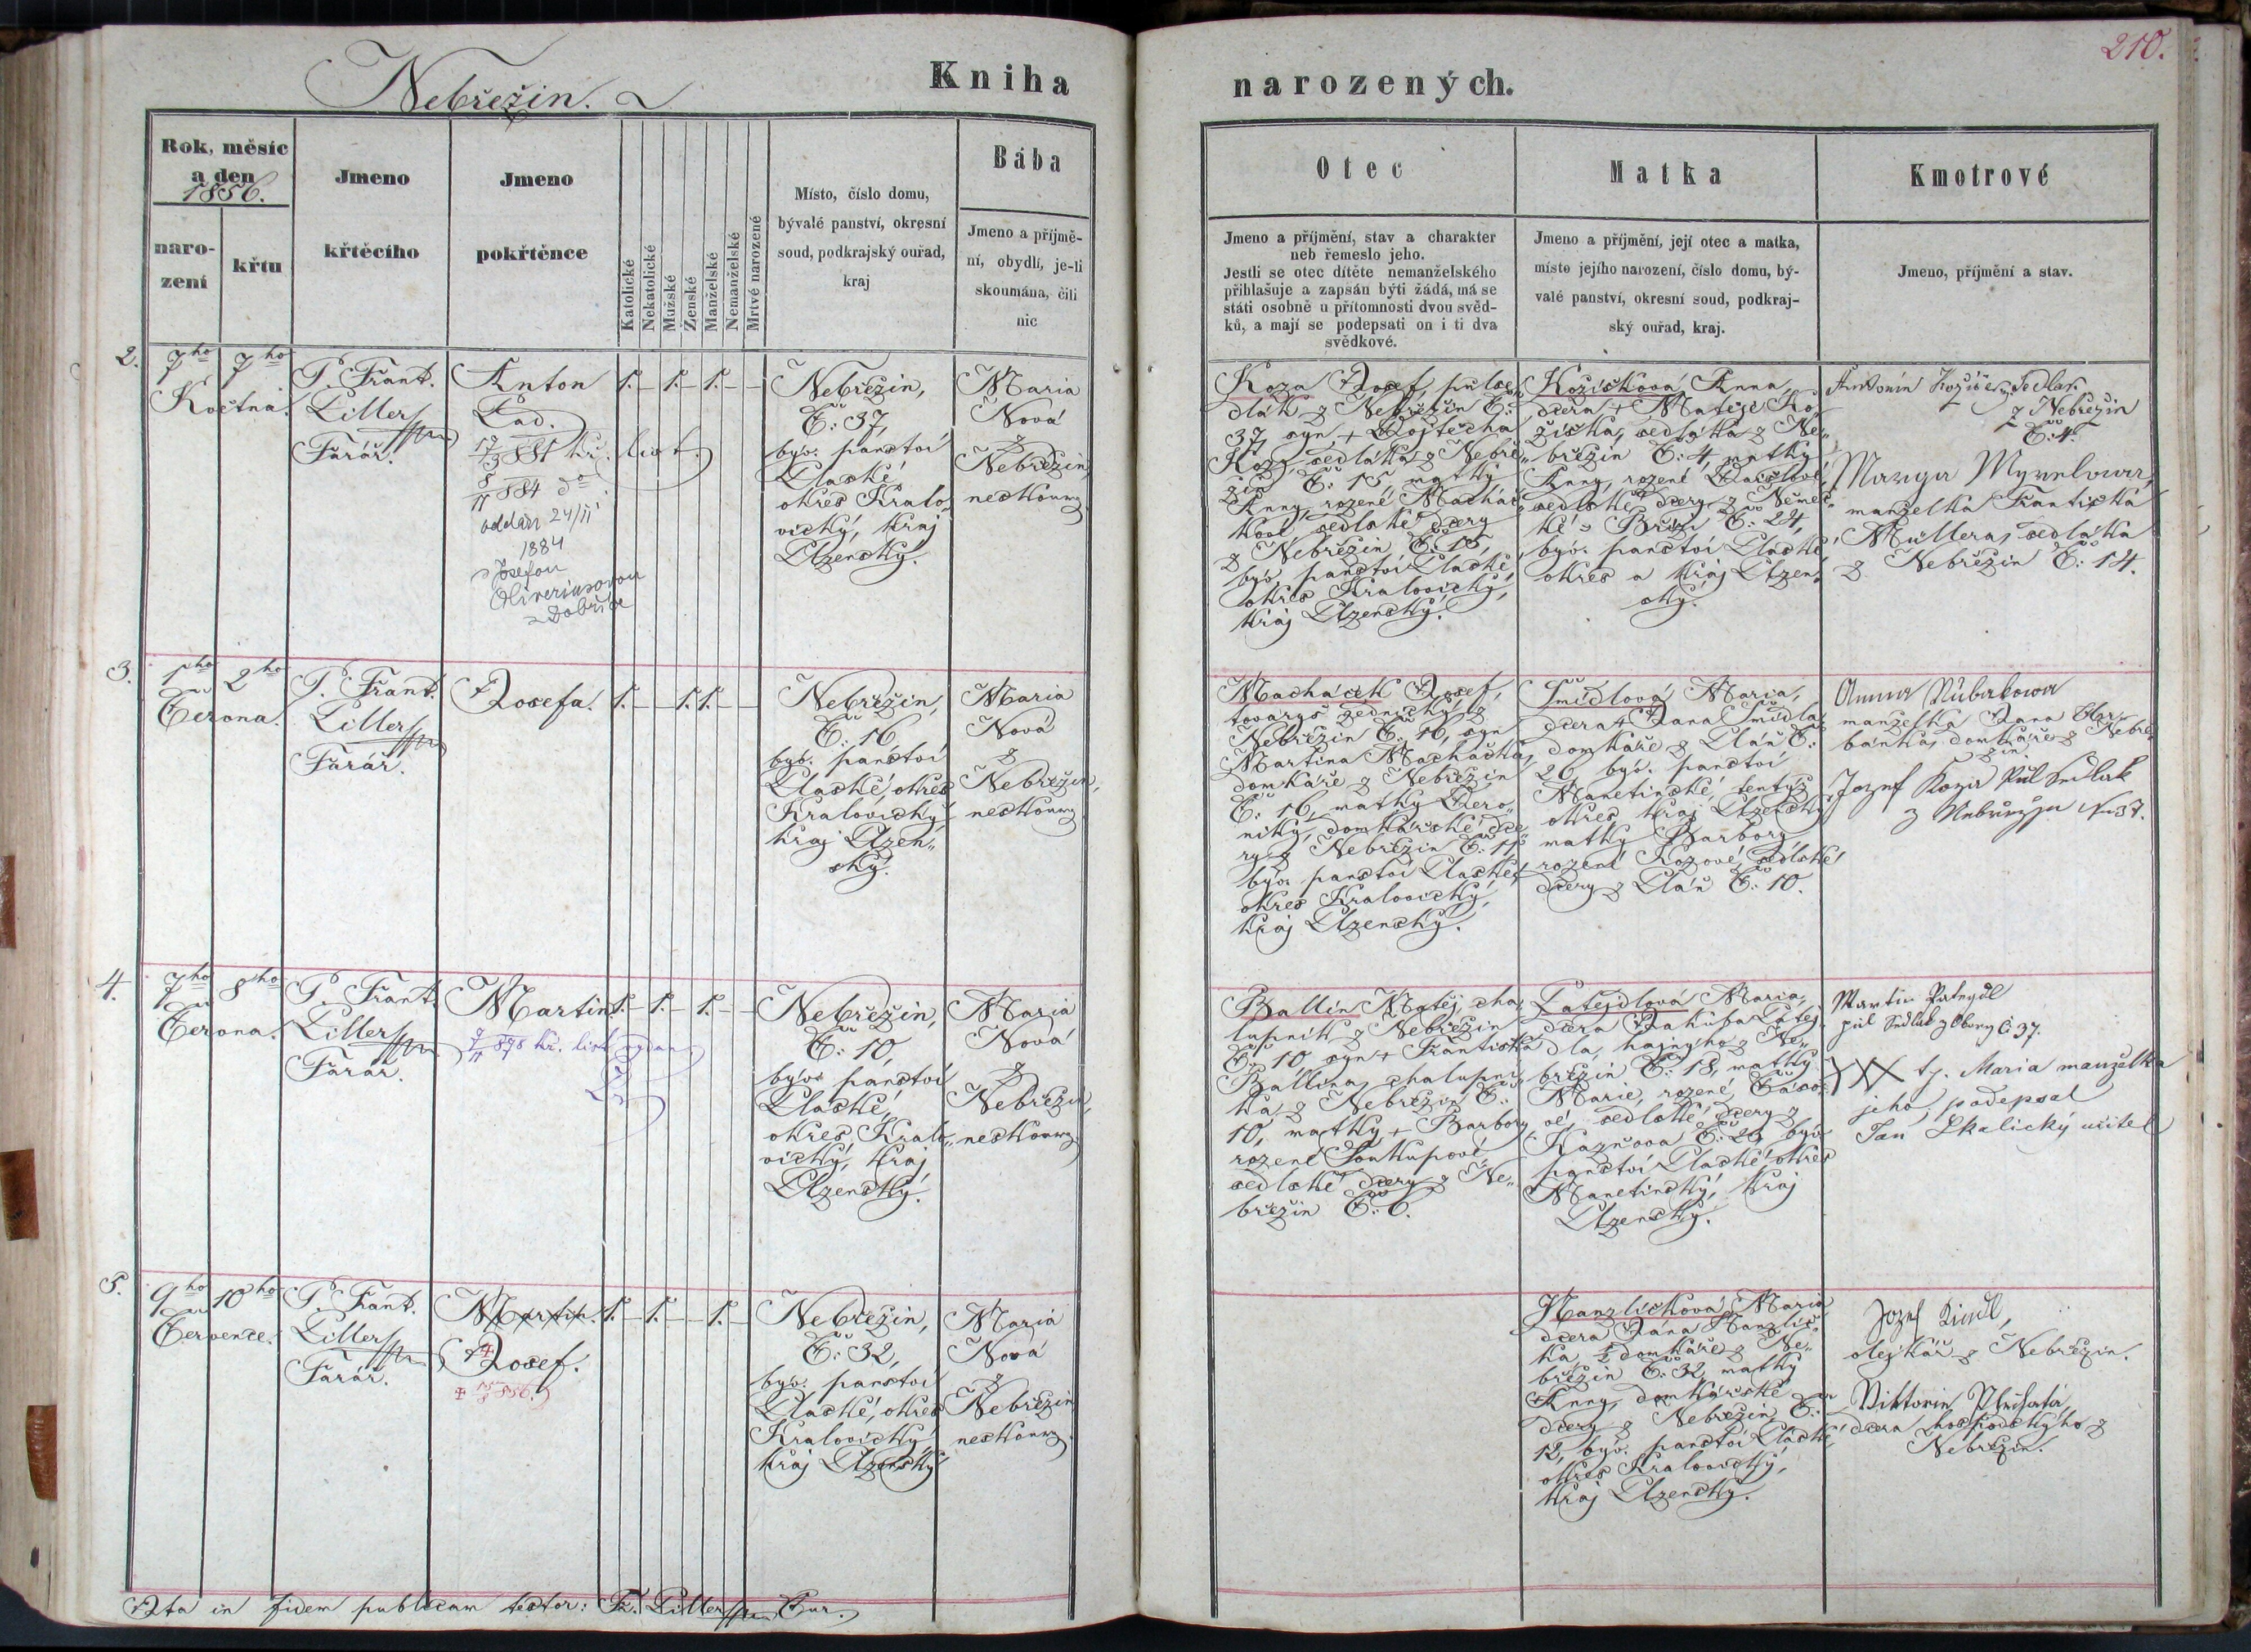 210.
Nebřežin.
Kniha
narozených.
Rok, měsíc
a den
1856.
naro-
zení
křtu
Jmeno
křtěcího
Jmeno
pokřtěnce
Katolické
Nekatolické
Mužské
Ženské
Manželské
Nemanželské
Mrtvé narozené
Místo, číslo domu,
bývalé panství, okresní
soud, podkrajský ouřad,
kraj
Bába
Jmeno a příjmě-
ní, obydlí, je-li
skoumána, čili
nic
Otec
Jmeno a příjmění, stav a charakter
neb řemeslo jeho.
Jestli se otec dítěte nemanželského
přihlašuje a zapsán býti žádá, má se
státi osobně u přítomnosti dvou svěd-
ků, a mají se podepsati on i ti dva
svědkové.
Matka
Jmeno a příjmění, její otec a matka,
místo jejího narození, číslo domu, bý-
valé panství, okresní soud, podkraj-
ský ouřad, kraj.
Kmotrové
Jmeno, příjmění a stav.
2.
7ho 7ho
Května.
P. Frant.
Liller
Farář.
Anton
Lad.
17/3 881 kř. list.
5/11 884 do
oddán 24/11
1884
s Josefou
Oliveriusovou
z Dobříče
1. – 1. – 1. – –
Nebřežin,
Č: 37,
býv. panství
Plaské,
okres Kralo„
vický, kraj
Plzenský.
Maria
Nová
z
Nebřežin,
neskoum.
Koza Josef, půlse„
dlák z Nebřežin Č:
37, syn + Vojtěcha
Kozy sedláka z Nebře„
žin Č: 15, matky
Anny, rozené Macháč„
kové, sedlské dcery
z Nebřežin Č: 15,
býv. panství Plaské,
okres Kralovický,
kraj Plzenský.
Kožíšková Anna,
dcera + Matěje Ko„
žíška, sedláka z Ne„
břežin Č: 4, matky
Anny, rozené
sedlské dcery z Němec„
ké Břízi Č: 24,
býv. panství Plaské,
okres a kraj Plzen„
ský.
Antonín Kožíšek, Sedlak
z Nebřežin
Č: 4.
manželka Františka
Müllera, sedláka
z Nebřežin Č: 14.
3.
1ho 2ho
Června.
P. Frant.
Liller
Farář.
Josefa.
1. – – 1. 1. – –
Nebřežin,
Č: 16
býv. panství
Plaské, okres
Kralovický
kraj Plzen„
ský.
Maria
Nová
z
Nebřežin,
neskoum.
Macháček Josef,
tovaryš zednický z
Nebřežin Č: 16, syn
Martina Macháčka,
domkáře z Nebřežin
Č: 16, matky Vero„
niky, domkářské dce„
ry z Nebřežin Č: 11
býv. panství Plaské,
okres Kralovický,
kraj Plzenský.
Šmídlová Maria,
dcera + Jana Šmídla,
domkáře z Pláň Č:
26, býv. panství
Manetinské, tentýž
okres, kraj Plzenský
matky Barbory
rozené Kozové, sedlské
dcery z Pláň Č: 10.
Anna
manželka Jana
domkáře z Nebře„
žin
Jozef Koza Půl Sedlak
z Nebřežin No 37.
4.
7ho 8ho
Června.
P. Frant.
Liller
Farář.
Martin
7/11 898 kř. list vydán
1. – 1. – 1. – –
Nebřežin,
Č: 10,
býv. panství
Plaské,
okres Kralo„
vický, kraj
Plzenský.
Maria
Nová
z
Nebřežin,
neskoum.
Ballin Matěj, cha„
lupník z Nebřežin
Č: 10 syn + Františka
Ballina, chalupní„
ka z Nebřežin Č:
10, matky + Barbory
rozené Soukupové
sedlské dcery z Ne„
břežin Č: 6.
Patejdlová Maria,
dcera Jakuba Patej„
dla, hajného z Ne„
břežin Č: 18, matky
Marie, rozené
vé, sedlské dcery z
Kaznova Č: 20 býv.
panství Plaské okres
Manetinský, kraj
Plzenský.
Martin Patejdl
půl Sedlak z Obory č 37.
XXX tj. Maria manželka
jeho, podepsal
Jan Skalický učitel
5.
9ho 10ho
Července.
P. Frant.
Liller
Farář.
Martin.
Josef.
+ 15/8 856.
1. – 1. – – 1. –
Nebřežin,
Č: 32,
býv. panství
Plaské, okres
Kralovický
kraj Plzenský
Maria
Nová
z
Nebřežin
neskoum.
Hanzlíčková Maria
dcera Jána Hanzlíč„
ka, ½ domkáře z Ne„
břežin Č: 32, matky
Anny, domkářské
dcery z Nebřežin, Č:
12, býv. panství Plaské
okres Kralovický,
kraj Plzenský.
Jozef Kindl,
olejkář z Nebřežin.
Viktorin
dcera hospodského z
Nebřežin.
Ita in fidem publicam testor: Fr. Liller Cur.